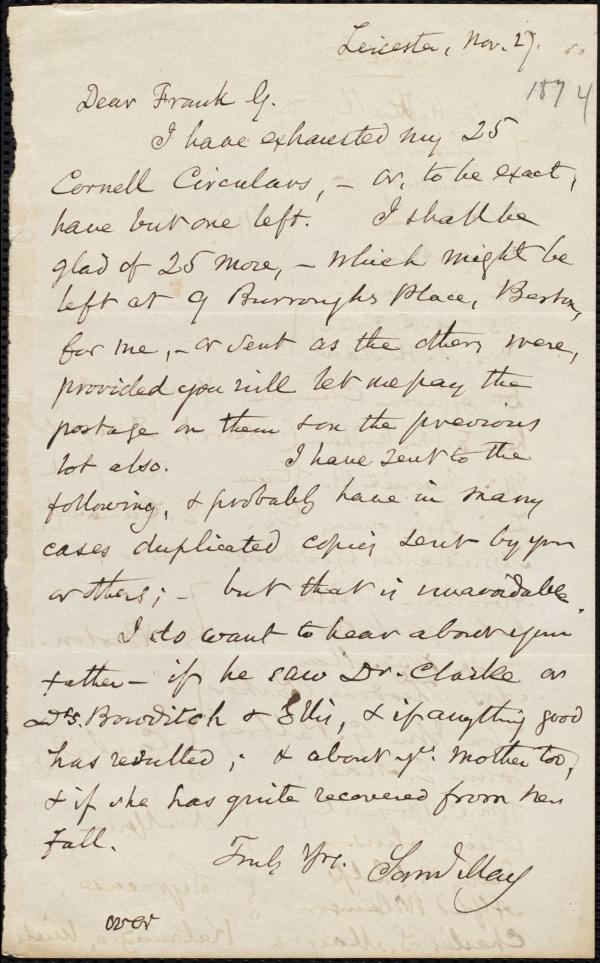 Leicester, Nov. 27.
1874
Dear Frank G.
I have exhausted my 25
Cornell Circulars, - or, to be exact,
have but one left. I shall be
glad of 25 more, - which might be
left at 9 Burroughs Place, Boston,
for me, - or sent as the others were,
provided you will let me pay the
postage on them & on the previous
lot also. I have sent to the
following, & probably have in many
cases duplicated copies sent by you
or others; - but that is unavoidable.
I do want to hear about your
father - if he saw Dr. Clarke or
Drs. Bowditch & Ellis, & if anything good
has resulted; & about yr. Mother too,
& if she has quite recovered from her
fall.
Truly Yrs.
Saml. May
over